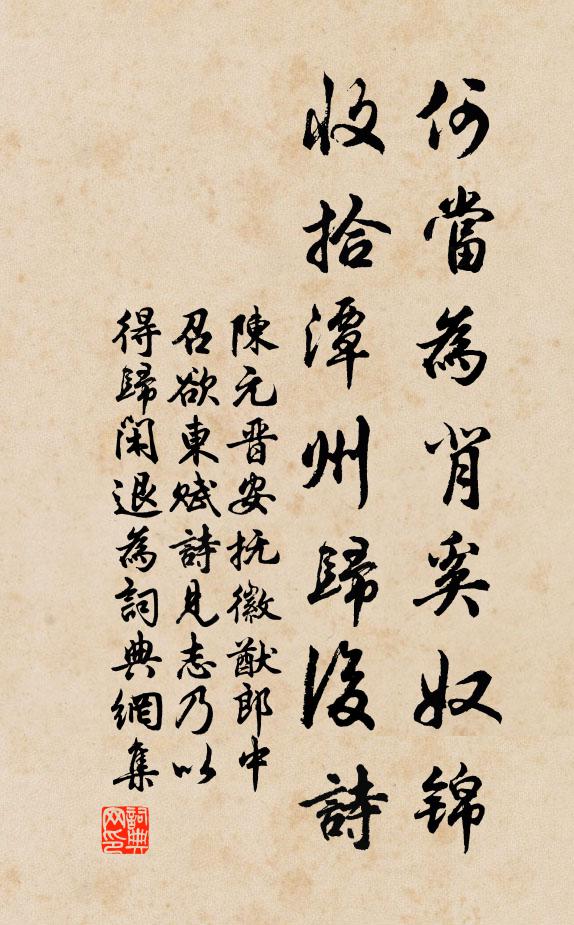 何當為背奚奴錦
收拾潭州歸後詩
陳元晋安抚徽猷郎中
召欲東赋詩見志乃以
得歸闲退為詞典網集
詞典网印